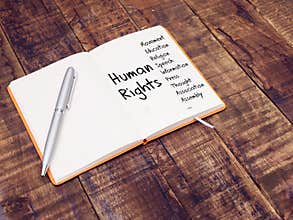 Human
Rights
Movement
Education
Religion
Speech
Information
Press
Thought
Association
Assembly